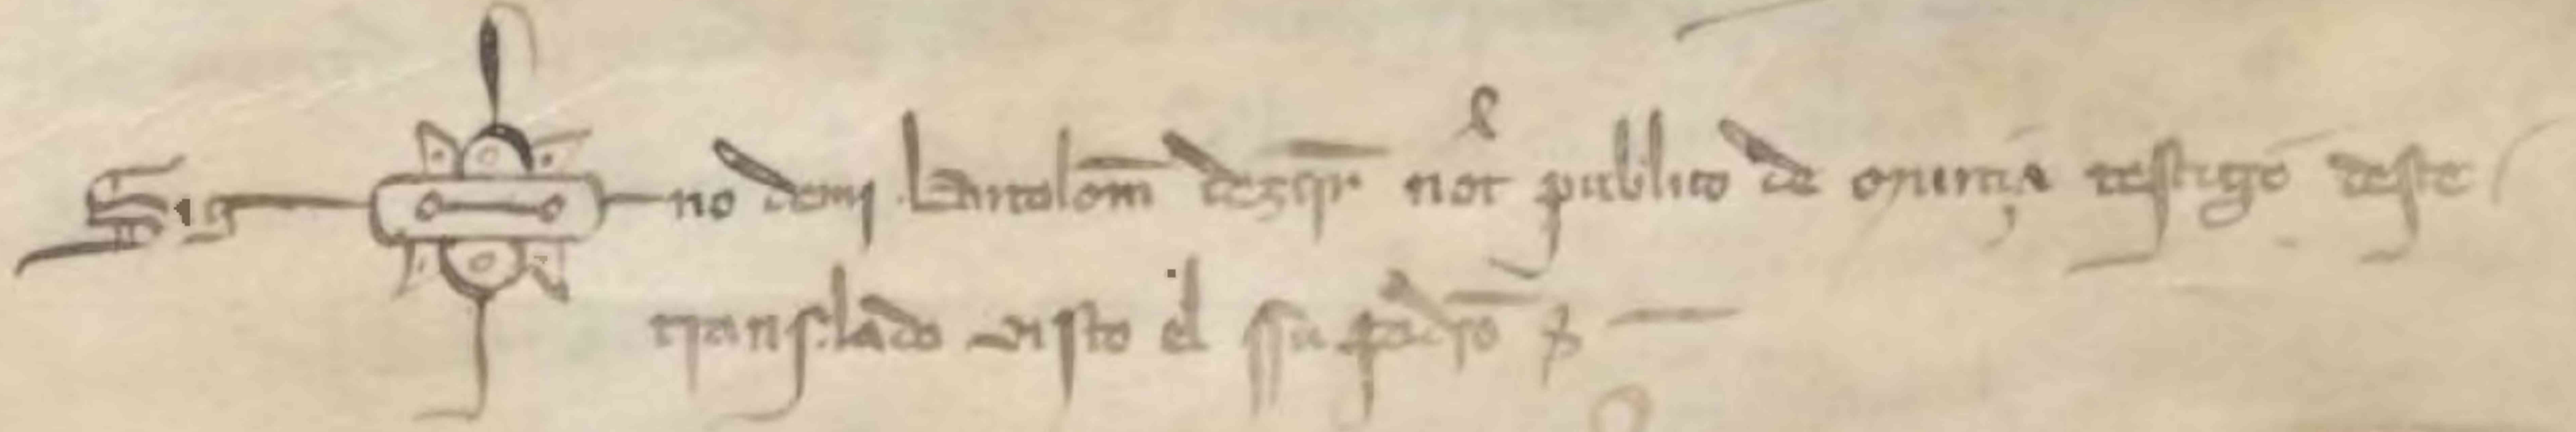 Sig no de mi Bartolom desqr not publico de oriuela testigo deste
translado visto el su padro